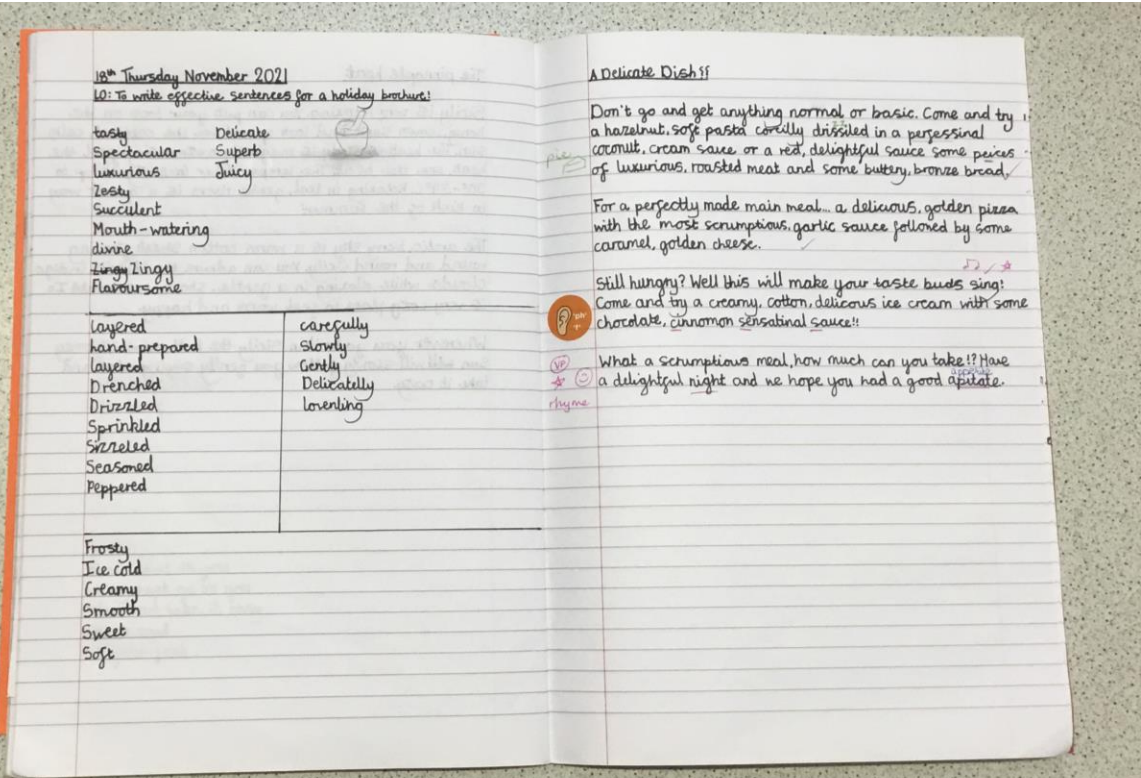 18th Thursday November 2021
LO: To write effective sentences for a holiday brochure!
tasty
Spectacular
luxurious
Zesty
Succulent
Mouth-watering
divine
Zingy Zingy
Flavoursome
Delicate
Superb
Juicy
layered
hand-prepared
layered
Drenched
Drizzled
Sprinkled
Sizzeled
Seasoned
Peppered
carefully
Slowly
Gently
Delicatelly
lovenling
Frosty
Ice cold
Creamy
Smooth
Sweet
Soft
A Delicate Dish!!
Don't go and get anything normal or basic. Come and try
a hazelnut, soft pasta corcilly drissiled in a perfessinal
coconut, cream sauce or a red, delightful sauce some peices
of luxurious, roasted meat and some buttery, bronze bread.
pie
For a perfectly made main meal... a delicious, golden pizza
with the most scrumptious, garlic sauce folloned by some
caramel, golden cheese.
Still hungry? Well this will make your taste buds sing!
Come and try a creamy, cotton, delicous ice cream with some
chocolate, cinnomon sensatinal sauce!!
What a scrumptious meal, how much can you take!? Have
a delightful night and we hope you had a good apitate.
appetite
VP
rhyme